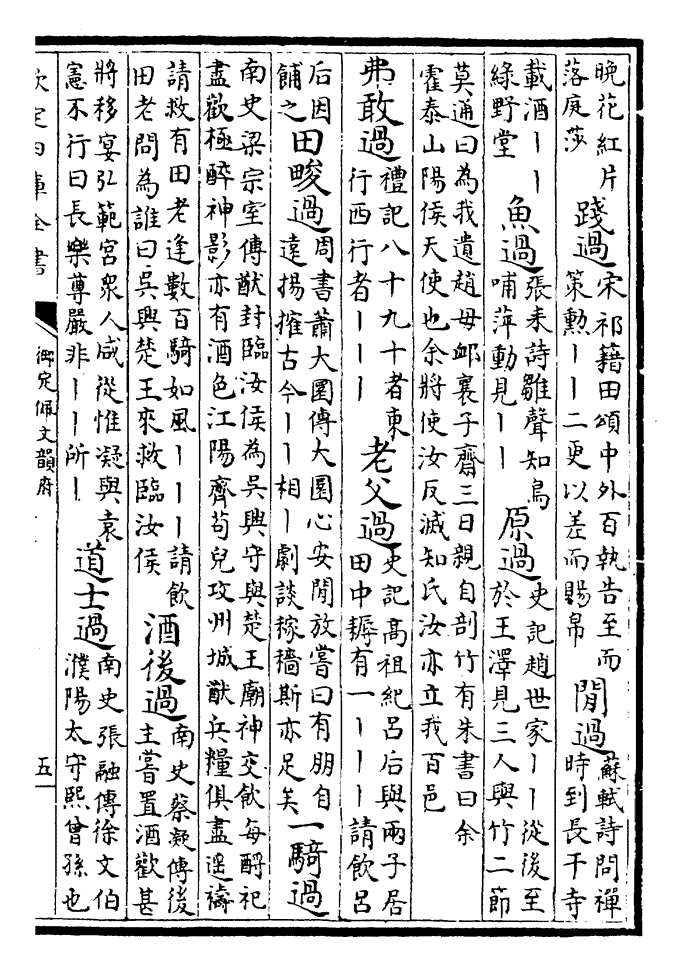 晚花紅片
落庭莎
踐過
宋祁籍田頌中外百執告至而
策勲丨丨二更以差而賜帛
閒過
蘇軾詩問禪
時到長干寺
載酒丨丨
綠野堂
魚過
張耒詩雛聲知鳥
哺萍動見丨丨
原過
史記趙世家丨丨從後至
於王澤見三人與竹二節
莫通曰為我遺趙毋䘏襄子齋三日親自剖竹有朱書曰余
霍泰山陽侯天使也余將使汝反滅知氏汝亦立我百邑
弗敢過
禮記八十九十者東
行西行者丨丨丨
老父過
史記高祖紀呂后與兩子居
田中耨有一丨丨丨請飲呂
后因
餔之
田畯過
周書蕭大圜傳大圜心安閒放嘗曰有朋自
遠揚搉古今丨丨相丨劇談稼穡斯亦足矣
一騎過
南史梁宗室傳猷封臨汝侯為吳興守與楚王廟神交飲每酹祀
盡歡極醉神影亦有酒色江陽齊苟兒攻州城猷兵糧俱盡遥禱
請救有田老逢數百騎如風丨丨丨請飲
田老問為誰曰吳興楚王來救臨汝侯
酒後過
南史蔡凝傳後
主嘗置酒歡甚
將移宴弘範宮衆人咸從惟凝與袁
憲不行曰長樂尊嚴非丨丨所丨
道士過
南史張融傳徐文伯
濮陽太守熙曾孫也
欽定四庫全書
御定佩文韻府
五